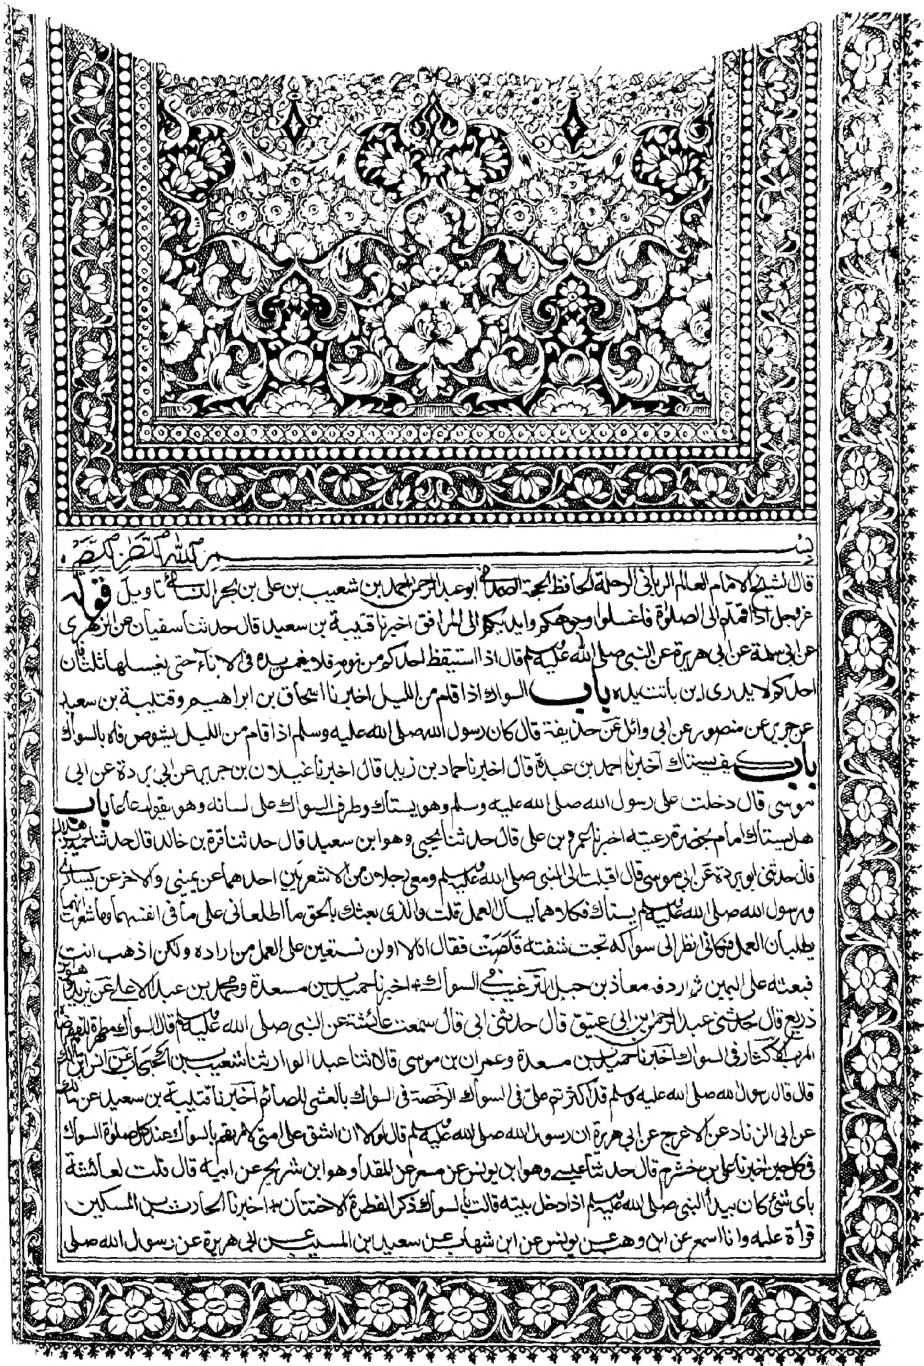 بسم الله الرحمن الرحيم
قال الشيخ الامام العالم الربانى الرحلة الحافظ الحجة الصمدانى ابو عبد الرحمن احمد بن شعيب بن على بن بحر النسائى تاويل قوله
عز وجل اذا قمتم الى الصلوة فاغسلوا وجوهكم وايديكم الى المرافق اخبرنا قتيبة بن سعيد قال حدثنا سفيان عن الزهرى
عن ابى سلمة عن ابى هريرة عن النبى صلى الله عليه وسلم قال اذا استيقظ احدكم من نومه فلا يغمس يده فى الاناء حتى يغسلها ثلثا فان
احدكم لا يدرى اين باتت يده باب السواك اذا قام من الليل اخبرنا اسحاق بن ابراهيم وقتيبة بن سعيد
عن جرير عن منصور عن ابى وائل عن حذيفة قال كان رسول الله صلى الله عليه وسلم اذا قام من الليل يشوص فاه بالسواك
باب كيف يستاك اخبرنا احمد بن عبدة قال اخبرنا حماد بن زيد قال اخبرنا غيلان بن جرير عن ابى بردة عن ابى
موسى قال دخلت على رسول الله صلى الله عليه وسلم وهو يستاك وطرف السواك على لسانه وهو يقول عأعأ باب
هل يستاك الامام بحضرة رعيته اخبرنا عمرو بن على قال حدثنا يحيى وهو ابن سعيد قال حدثنا قرة بن خالد قال حدثنا حميد بن هلال
قال حدثنى ابو بردة عن ابى موسى قال اقبلت الى النبى صلى الله عليه وسلم ومعى رجلان من الاشعريين احدهما عن يمينى والاخر عن يسارى
ورسول الله صلى الله عليه وسلم يستاك فكلاهما يسأل العمل قلت والذى بعثك بالحق ما اطلعانى على ما فى انفسهما وما شعرت انهما
يطلبان العمل فكانى انظر الى سواكه تحت شفته قلصت فقال انا لا او لن نستعين على العمل من اراده ولكن اذهب انت
فبعثه على اليمن ثم اردفه معاذ بن جبل الترغيب فى السواك اخبرنا حميد بن مسعدة ومحمد بن عبد الاعلى عن يزيد وهو ابن
زريع قال حدثنى عبد الرحمن بن ابى عتيق قال حدثنى ابى قال سمعت عائشة عن النبى صلى الله عليه وسلم قال السواك مطهرة للفم مرضاة
للرب الاكثار فى السواك اخبرنا حميد بن مسعدة وعمران بن موسى قالا ثنا عبد الوارث ثنا شعيب بن الحبحاب عن انس بن مالك
قال قال رسول الله صلى الله عليه وسلم قد اكثرتم على فى السواك الرخصة فى السواك بالعشى للصائم اخبرنا قتيبة بن سعيد عن مالك
عن ابى الزناد عن الاعرج عن ابى هريرة ان رسول الله صلى الله عليه وسلم قال لولا ان اشق على امتى لامرتهم بالسواك عند كل صلوة السواك
فى كل حين اخبرنا على بن خشرم قال حدثنا عيسى وهو ابن يونس عن مسعر عن المقدام وهو ابن شريح عن ابيه قال قلت لعائشة
باى شئ كان يبدأ النبى صلى الله عليه وسلم اذا دخل بيته قالت بالسواك ذكر الفطرة الاختتان اخبرنا الحارث بن المسكين
قرأة عليه وانا اسمع عن ابن وهب عن يونس عن ابن شهاب عن سعيد ابن المسيب عن ابى هريرة عن رسول الله صلى